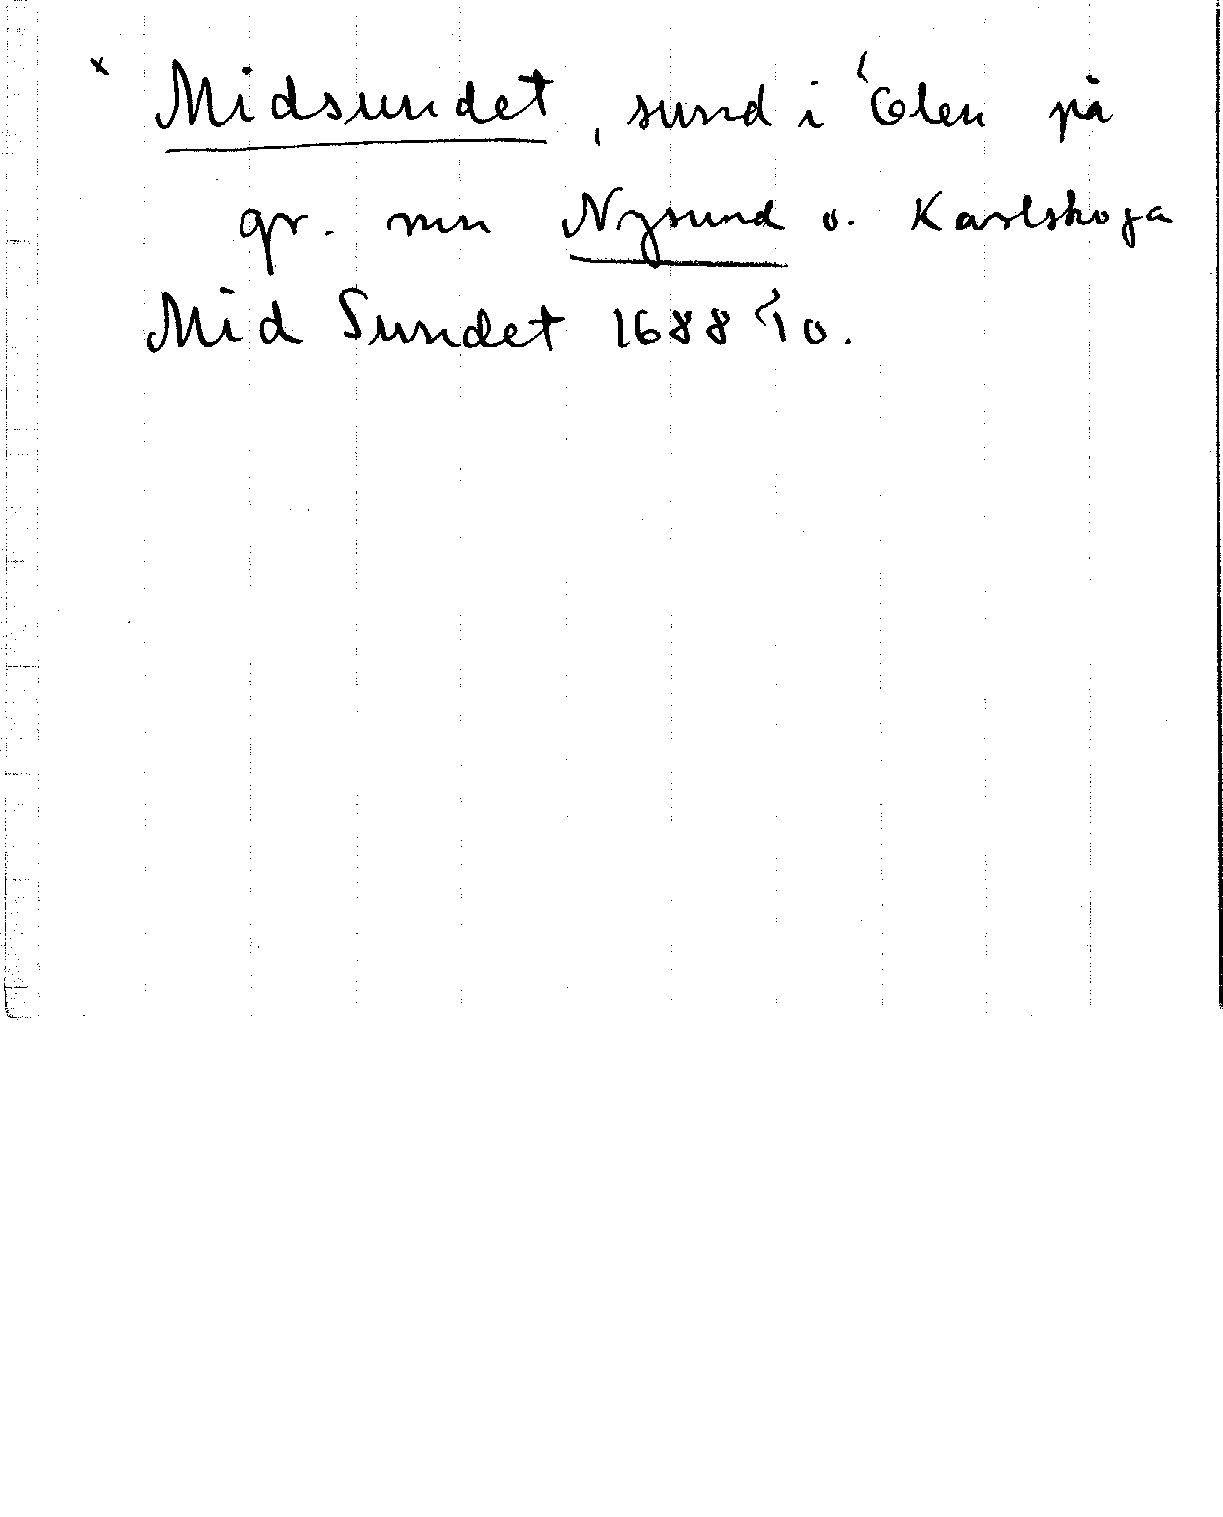 x Midsundet, sund i Ölen på
gr. mn Nysund o. Karlskoga
Mid Sundet 1688 10.